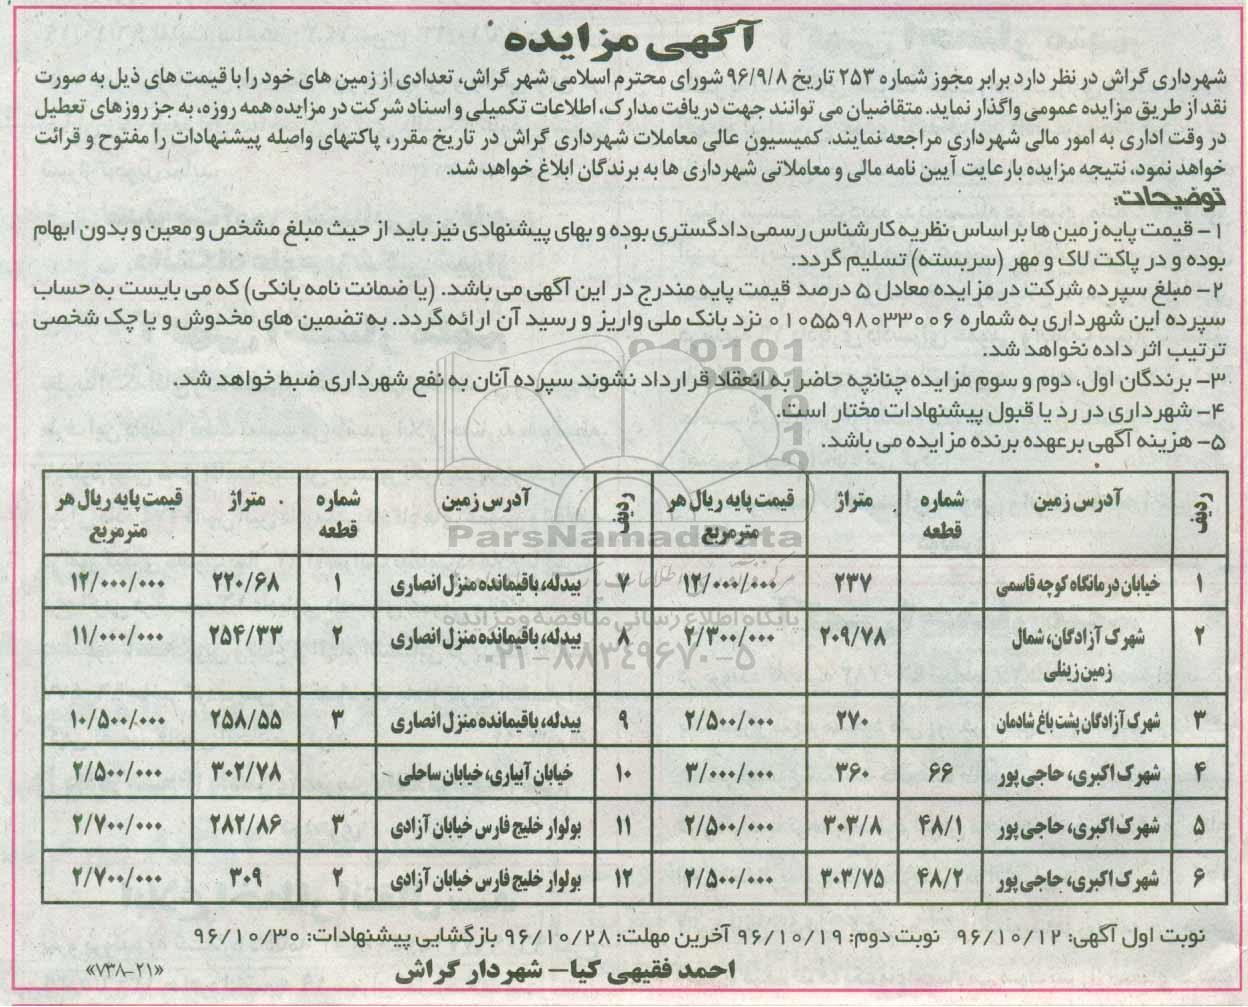 آگهی مزایده
شهرداری گراش در نظر دارد برابر مجوز شماره ۲۵۳ تاریخ ۹۶/۹/۸ شورای محترم اسلامی شهر گراش، تعدادی از زمین های خود را با قیمت های ذیل به صورت
نقد از طریق مزایده عمومی واگذار نماید. متقاضیان می توانند جهت دریافت مدارک، اطلاعات تکمیلی و اسناد شرکت در مزایده همه روزه، به جز روزهای تعطیل
در وقت اداری به امور مالی شهرداری مراجعه نمایند. کمیسیون عالی معاملات شهرداری گراش در تاریخ مقرر، پاکتهای واصله پیشنهادات را مفتوح و قرائت
خواهد نمود، نتیجه مزایده بارعایت آیین نامه مالی و معاملاتی شهرداری ها به برندگان ابلاغ خواهد شد.
توضیحات:
۱- قیمت پایه زمین ها بر اساس نظریه کارشناس رسمی دادگستری بوده و بهای پیشنهادی نیز باید از حیث مبلغ مشخص و معین و بدون ابهام
بوده و در پاکت لاک و مهر (سربسته) تسلیم گردد.
۲- مبلغ سپرده شرکت در مزایده معادل ۵ درصد قیمت پایه مندرج در این آگهی می باشد. (یا ضمانت نامه بانکی) که می بایست به حساب
سپرده این شهرداری به شماره ۰۱۰۵۵۹۸۰۳۳۰۰۶ نزد بانک ملی واریز و رسید آن ارائه گردد. به تضمین های مخدوش و یا چک شخصی
ترتیب اثر داده نخواهد شد.
۳- برندگان اول، دوم و سوم مزایده چنانچه حاضر به انعقاد قرارداد نشوند سپرده آنان به نفع شهرداری ضبط خواهد شد.
۴- شهرداری در رد یا قبول پیشنهادات مختار است.
۵- هزینه آگهی برعهده برنده مزایده می باشد.
ردیف آدرس زمین شماره قطعه متراژ قیمت پایه ریال هر مترمربع ردیف آدرس زمین شماره قطعه متراژ قیمت پایه ریال هر مترمربع
۱ خیابان درمانگاه کوچه قاسمی ۲۳۷ ۱۲/۰۰۰/۰۰۰ ۷ بیدله، باقیمانده منزل انصاری ۱ ۲۲۰/۶۸ ۱۲/۰۰۰/۰۰۰
۲ شهرک آزادگان، شمال زمین زینلی ۲۰۹/۷۸ ۲/۳۰۰/۰۰۰ ۸ بیدله، باقیمانده منزل انصاری ۲ ۲۵۴/۳۳ ۱۱/۰۰۰/۰۰۰
۳ شهرک آزادگان پشت باغ شادمان ۲۷۰ ۲/۵۰۰/۰۰۰ ۹ بیدله، باقیمانده منزل انصاری ۳ ۲۵۸/۵۵ ۱۰/۵۰۰/۰۰۰
۴ شهرک اکبری، حاجی پور ۶۶ ۳۶۰ ۳/۰۰۰/۰۰۰ ۱۰ خیابان آبیاری، خیابان ساحلی ۳۰۲/۷۸ ۲/۵۰۰/۰۰۰
۵ شهرک اکبری، حاجی پور ۴۸/۱ ۳۰۳/۸ ۲/۵۰۰/۰۰۰ ۱۱ بولوار خلیج فارس خیابان آزادی ۳ ۲۸۲/۸۶ ۲/۷۰۰/۰۰۰
۶ شهرک اکبری، حاجی پور ۴۸/۲ ۳۰۳/۷۵ ۲/۵۰۰/۰۰۰ ۱۲ بولوار خلیج فارس خیابان آزادی ۲ ۳۰۹ ۲/۷۰۰/۰۰۰
نوبت اول آگهی: ۹۶/۱۰/۱۲ نوبت دوم: ۹۶/۱۰/۱۹ آخرین مهلت: ۹۶/۱۰/۲۸ بازگشایی پیشنهادات: ۹۶/۱۰/۳۰
احمد فقیهی کیا- شهردار گراش
«۷۳۸-۲۱»
ParsNamadData
پایگاه اطلاع رسانی مناقصه و مزایده
۰۲۱-۸۸۳۴۹۶۷۰-۵